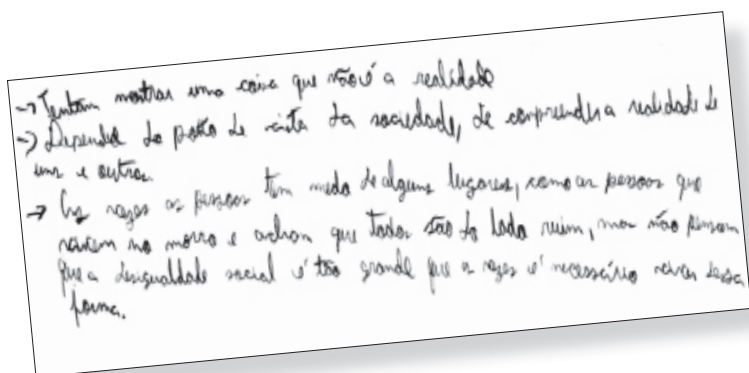 → Tentam mostrar uma coisa que não é a realidade
→ Depende do ponto de vista da sociedade, de compreender a realidade de
uns e outros.
→ As vezes as pessoas tem medo de alguns lugares, como as pessoas que
vivem no morro e acham que todos são do lado ruim, mas não pensam
que a desigualdade social é tão grande que as vezes é necessário viver dessa
forma.